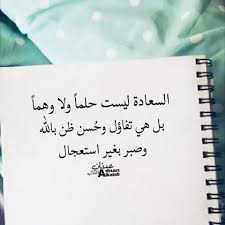 السعادة ليست حلماً ولا وهماً
بل هي تفاؤل وحُسن ظن بالله
وصبر بغير استعجال
Adnan
Alkateb